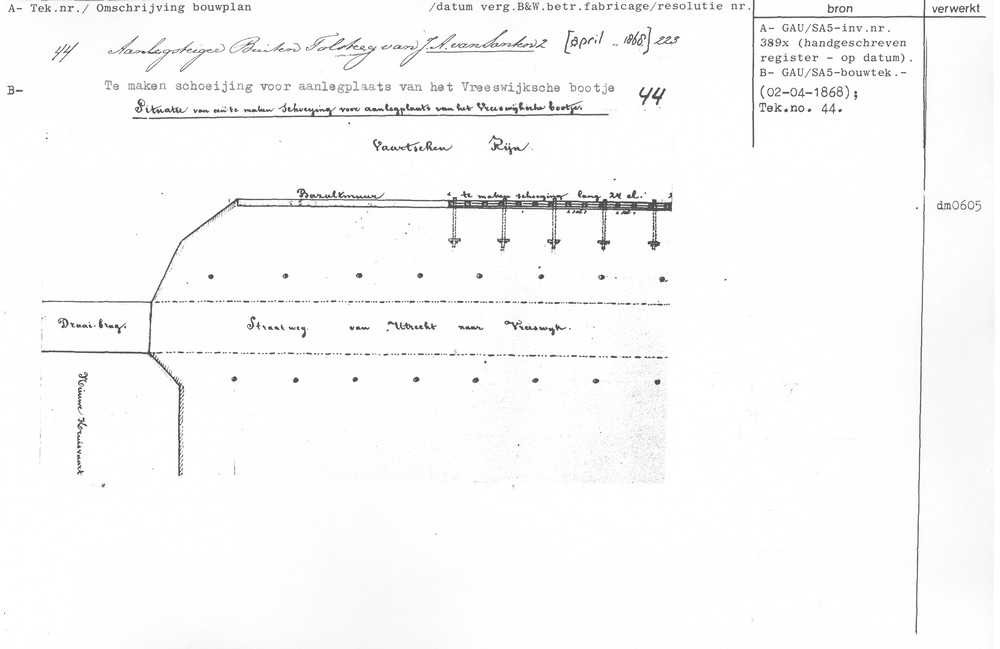 A- Tek.nr./ Omschrijving bouwplan /datum verg.B&W.betr.fabricage/resolutie nr.
bron
verwerkt
44 Aanlegsteiger Buiten Tolsteeg van J.A. van [april .. 1868] 223
A- GAU/SA5-inv.nr.
389x (handgeschreven
register - op datum).
B- GAU/SA5-bouwtek.-
(02-04-1868);
Tek.no. 44.
B- Te maken schoeijing voor aanlegplaats van het Vreeswijksche bootje
44
Situatie van eene te maken schoeying voor aanlegplaats van het Vreeswijksche bootje.
Vaartschen Rijn.
Bazaltmuur
te maken schoeying lang 24 el.
dm0605
Draai-brug.
Straatweg van Utrecht naar Vreeswyk.
Nieuwe Kruisvaart